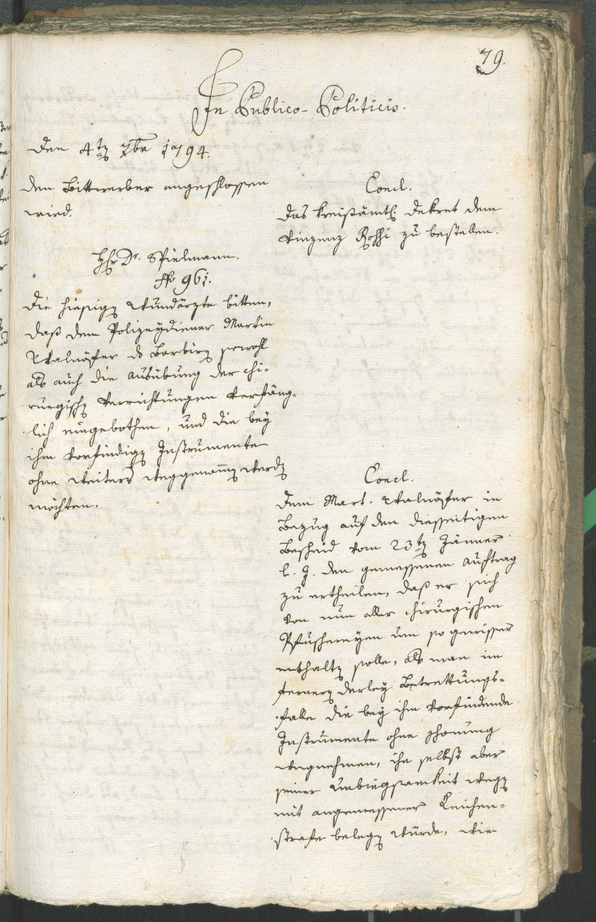 79.
In Publico-Politicis.
Den 4ten 7ber 1794.
dem Bittwerber angeschlossen
wird.
Concl.
Das kreisämtl. Dekret dem
Vinzenz Rossi zu bestellen.
Hr Dr. Spielmann.
No 961.
Die hiesigen Wundärzte bitten,
daß dem Polizeydiener Martin
das Barbiren sowohl
als auch die Ausübung der chi-
rurgischen Verrichtungen verfäng-
lich eingebothen, und die bey
ihm vorfindigen Instrumente
ohne weiters weggenommen werden
möchten.
Concl.
Dem Mart. in
Bezug auf den diesseitigen
Bescheid vom 23ten Jänner
l. J. den gemessenen Auftrag
zu ertheilen, daß er sich
von nun aller chirurgischen
Pfuschereyen um so gewisser
enthalten solle, als man im
fernern derley Betrettungs-
falle die bey ihm vorfindende
Instrumente ohne Schonung
wegnehmen, ihn selbst aber
seiner Unbiegsamkeit wegen
mit angemessener Leibes-
strafe belegen würde, wie